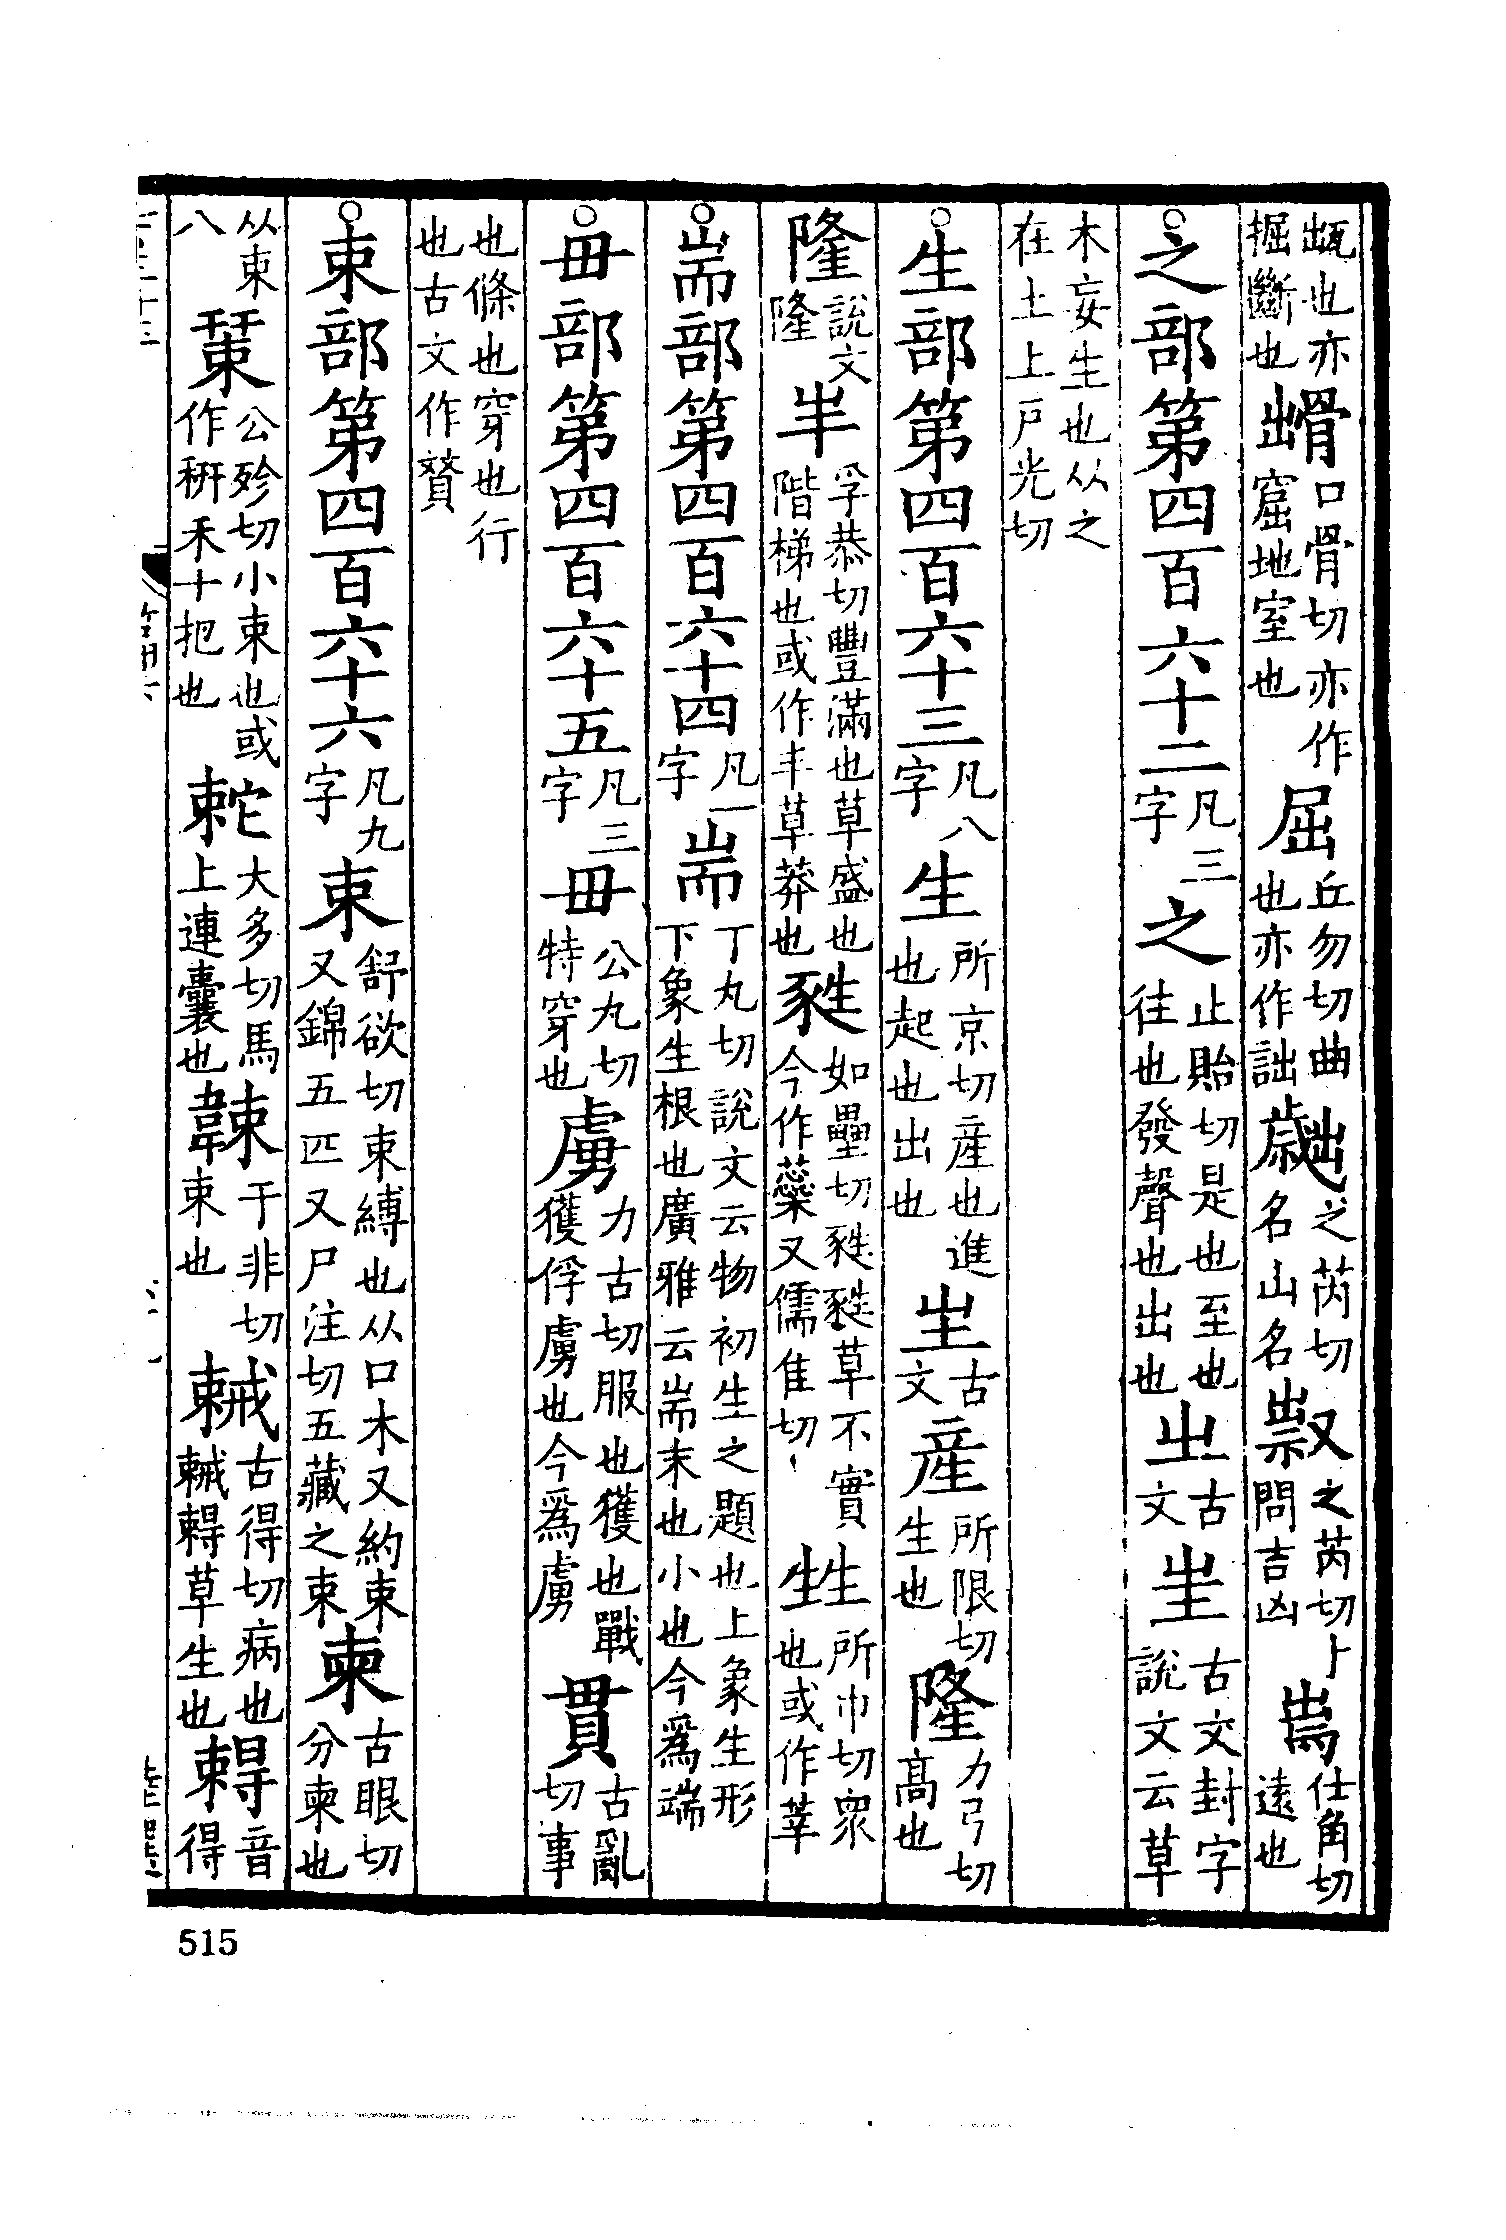 𡵆也亦掘斷也𡴭口骨切亦作窟地室也屈丘勿切曲也亦作詘𡴯之芮切名山名𥜓之芮切卜問吉凶𡴥仕角切遠也
之部第四百六十二凡三字之止貽切是也至也往也發聲也出也㞢古文㞷古文封字說文云草
木妄生也从之在土上戸光切
生部第四百六十三凡八字生所京切產也進也起也出也𤯓古文産所限切生也隆力弓切髙也
隆說文隆半孚恭切豐滿也草盛也階梯也或作丰草莽也甤如壘切甤甤草不實今作蘂又儒隹切甡所巾切衆也或作莘
耑部第四百六十四凡一字耑丁丸切說文云物初生之題也上象生形下象生根也廣雅云耑末也小也今爲端
毌部第四百六十五凡三字毌公丸切特穿也虜力古切服也獲也戰獲俘虜也今爲虜貫古亂切事
也條也穿也行也古文作𧶜
束部第四百六十六凡九字束舒欲切束縛也从口木又約束又錦五匹又尸注切五藏之束柬古眼切分柬也
从束八𣗥公殄切小束也或作秳禾十把也𣗫大多切馬上連囊也韋束于非切束也𣗻古得切病也𣗻𣘅草生也𣘅音得
515